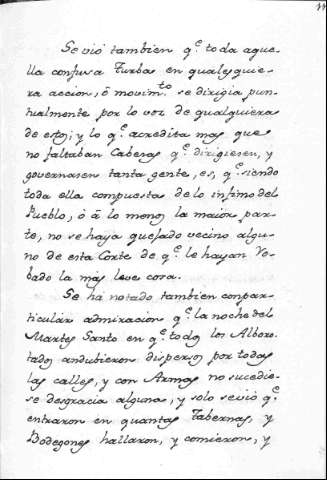 Se vió tambien q.e toda aque-
lla confusa Turba en qualesquie-
ra accion, ó movim.to se dirigia pun-
tualmente por lo voz de qualquiera
de estos; y lo q.e acredita mas que
no faltaban Cabezas q.e dirigiesen, y
governasen tanta gente, es, q.e siendo
toda ella compuesta de lo infimo del
Pueblo, ó á lo menos la maior par-
te, no se haya quejado vecino algu-
no de esta Corte de q.e le hayan ro-
bado la más leve cosa.
Se há notado tambien con par-
ticular admiracion q.e la noche del
Martes Santo en q.e todos los Alboro-
tados andubieron dispersos por todas
las calles, y con Armas no sucedie-
se desgracia alguna, y solo se vió q.e
entraron en quantas Tabernas, y
Bodegones hallaron, y comieron, y